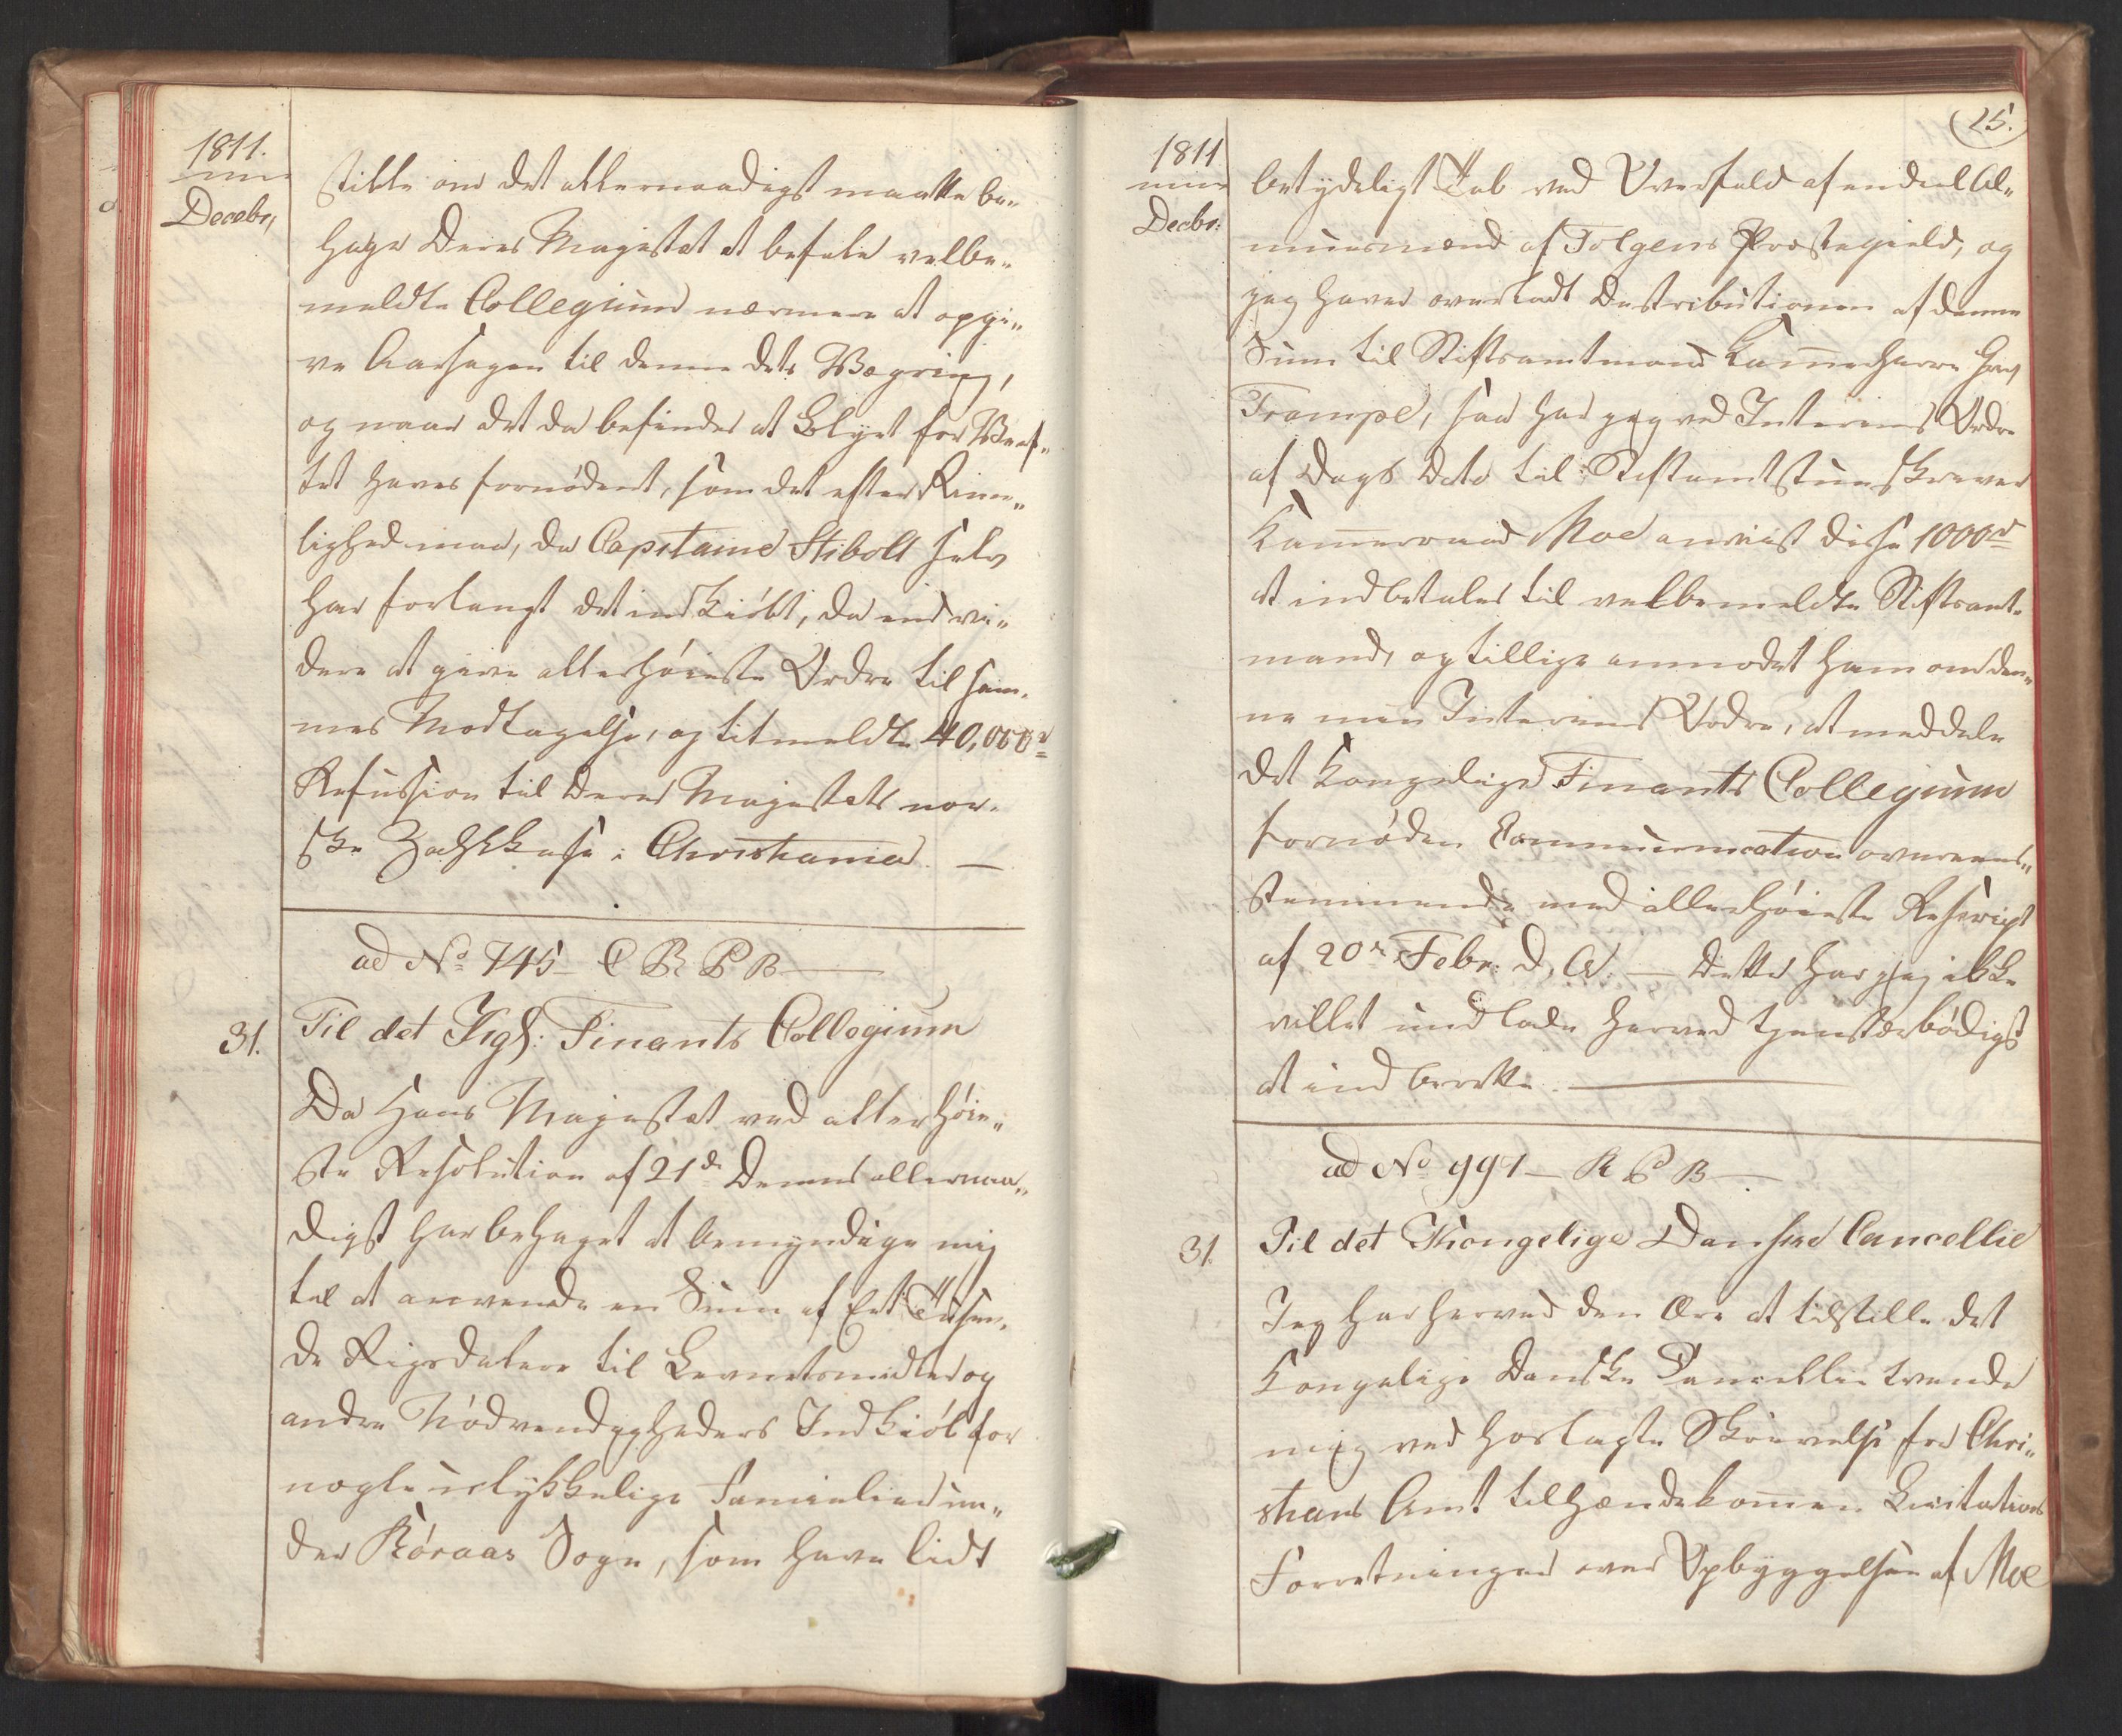 1811.
Decebr,
stille om det allernaadigst maatte be„
hage Deres Majestæt at befale velbe„
meldte Collegium nærmere at opgi„
ve Aarsagen til denne dets Vægring,
og naar det da befindes at Blyet for Værf„
tet haves fornødent, som det efter Rime„
lighed maa, da Capitaine Stibolt selv
har forlangt det indkiøbt, da end vi„
dere at give allerhøieste Ordre til sam„
mes Modtagelse, og titmeldte 40,000 rd
Refussion til Deres Majestæts nor„
ske Zahlkasse i Christiania. —
ad No 745 — C R P B —
31.
Til det Kgl: Finants Collegium
Da Hans Majestæt ved allerhøie„
ste Resolution af 21de Dennes allernaa„
digst har behaget at bemyndige mig
til at anvende en Sum af Eet Tusen„
de Rigsdalere til Levnetsmidler og
andre Nødvendigheders Indkiøb for
nogle ulykkelige Familier un„
der Røraas Sogn, som have lidt
25.
1811
Decbr:
betydeligt Tab ved Overfald af endeel Al„
muesmænd af Tolgens Præstegield, og
jeg haver overladt Distributionen af denne
Sum til Stiftsamtmand Kammerherre Grev
Trampe, saa har jeg ved Interims Ordre
af Dags Dato til Stiftamtstueskriver
Kammerraad Moe anviist disse 1000 rd
at indbetales til velbemeldte Stiftsamt„
mand, og tillige anmodet ham om den„
ne min Interims Ordre, at meddele
det Kongelige Finants Collegium
fornøden Communication overeens„
stemmende med allerhøieste Rescript
af 20de Febr: d. A: — Dette har jeg ikke
villet undlade herved tjenstærbødigst
at indberette. —
ad No 991 — R P B —
31.
Til det Kongelige Danske Cancellie
Jeg har herved den Ære at tilstille det
Kongelige Danske Cancellie tvende
mig ved hoslagte Skrivelse fra Chri„
stians Amt tilhændekomen Licitations
Forretninger over Opbyggelsen af Moe